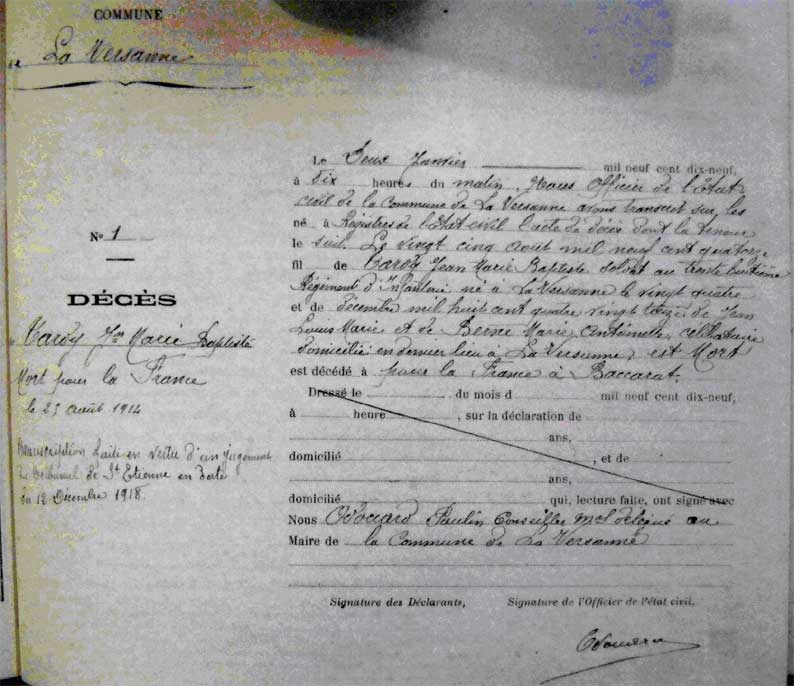 COMMUNE
de La Versanne
Le Deux Janvier mil neuf cent dix-neuf,
à Dix heures du matin, Nous Officier de l'état
civil de la Commune de La Versanne avons transcrit sur les
né à Registres de l'état civil l'acte de décès dont la teneur
le suit. Le vingt cinq août mil neuf cent quatorze
fil de Tardy Jean Marie Baptiste soldat au trente huitième
Régiment d'Infanterie né à La Versanne le vingt quatre
et de décembre mil huit cent quatre vingt treize de Jean
Louis Marie et de Berne Marie Antoinette, célibataire
domicilié en dernier lieu à La Versanne, est Mort
est décédé à pour la France à Baccarat.
Dressé le du mois d mil neuf cent dix-neuf,
à heure , sur la déclaration de
ans,
domicilié , et de
ans,
domicilié qui, lecture faite, ont signé avec
Nous Odouard Paulin Conseiller mcl délégué au
Maire de la Commune de La Versanne
Signature des Déclarants, Signature de l'Officier de l'état civil.
N° 1
DÉCÈS
Tardy Jn Marie Baptiste
Mort pour la France
le 25 août 1914
Transcription faite en vertu d'un jugement
du tribunal de St Etienne en date
du 12 Décembre 1918.